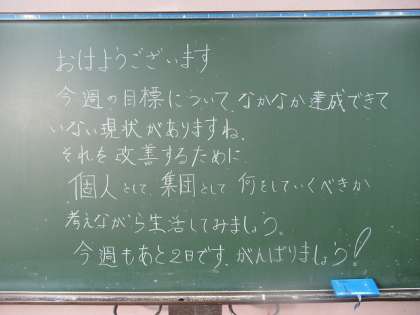 おはようございます
今週の目標について、なかなか達成できて
いない現状がありますね。
それを改善するために、
個人として、集団として何をしていくべきか
考えながら生活してみましょう。
今週もあと2日です。がんばりましょう!